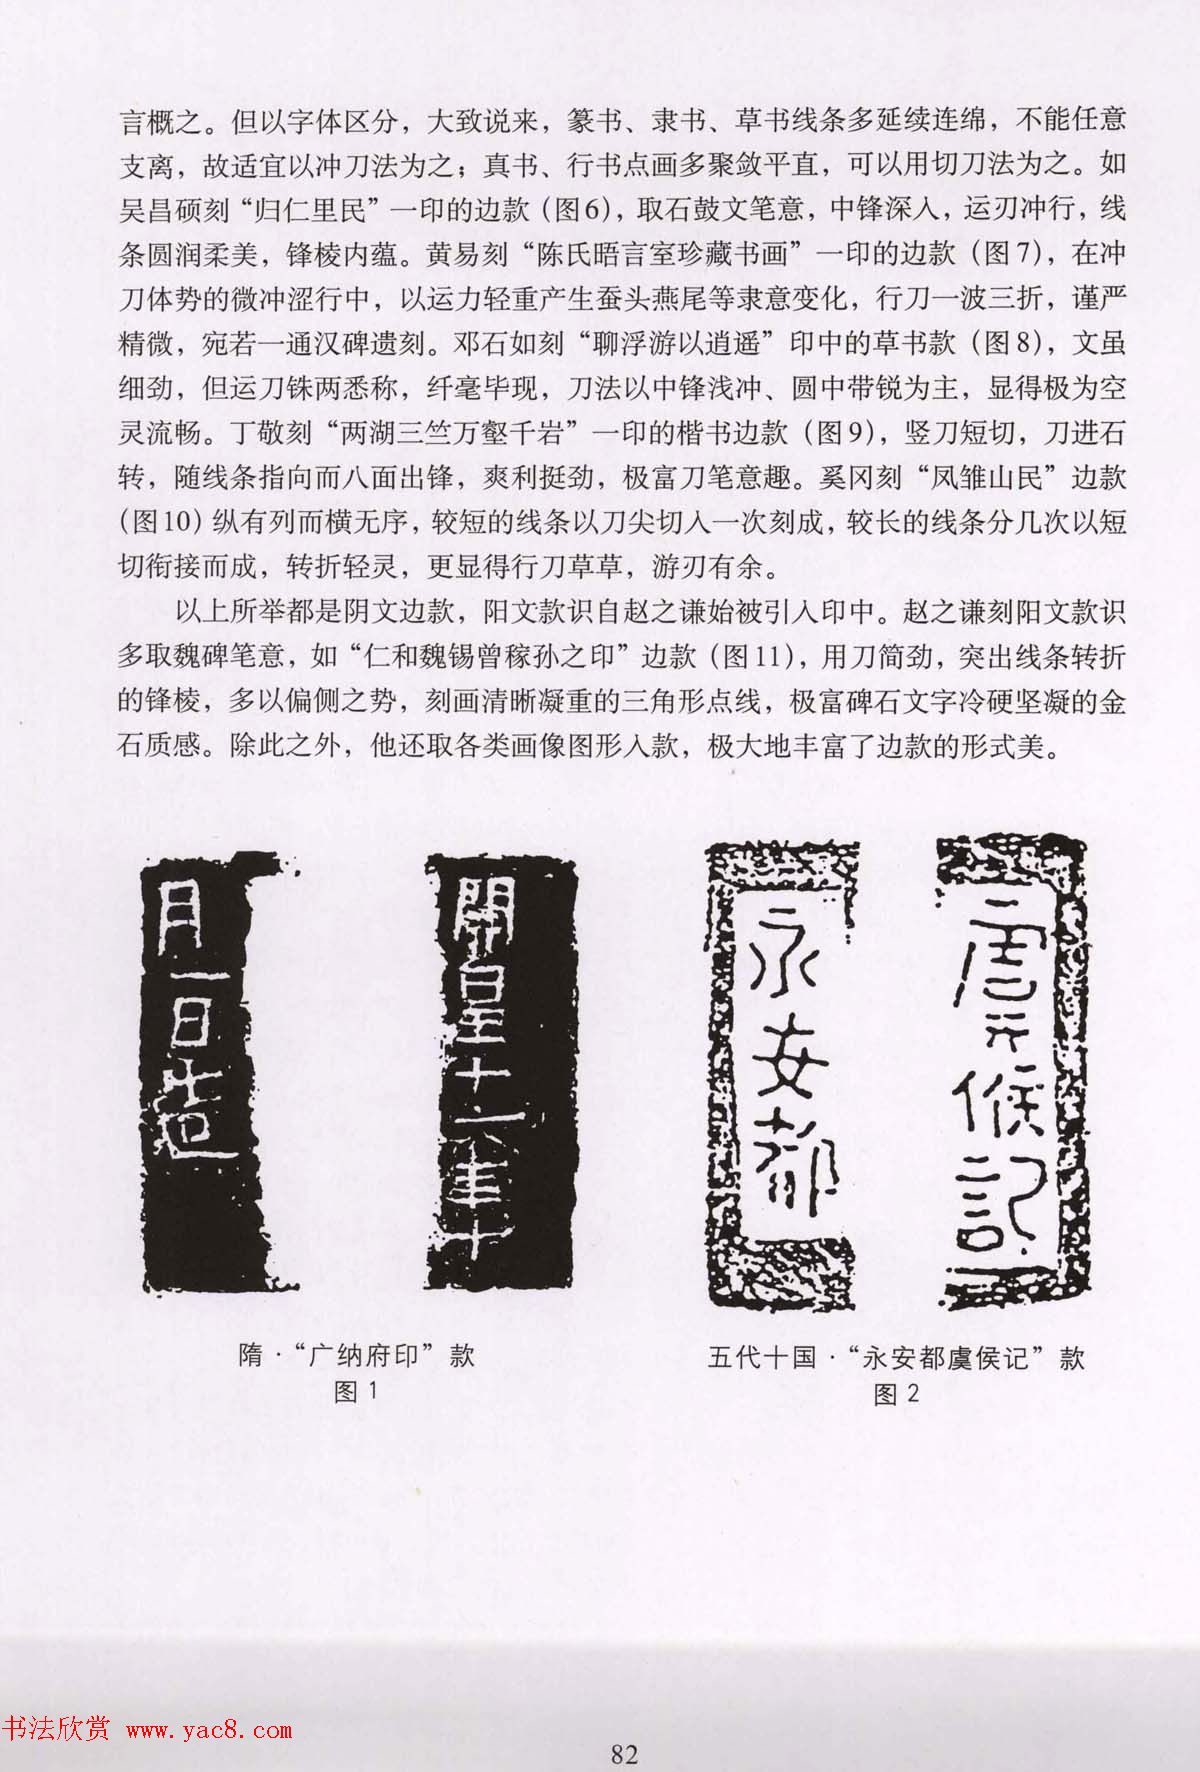 言概之。但以字体区分，大致说来，篆书、隶书、草书线条多延续连绵，不能任意
支离，故适宜以冲刀法为之；真书、行书点画多聚敛平直，可以用切刀法为之。如
吴昌硕刻“归仁里民”一印的边款（图6），取石鼓文笔意，中锋深入，运刃冲行，线
条圆润柔美，锋棱内蕴。黄易刻“陈氏晤言室珍藏书画”一印的边款（图7），在冲
刀体势的微冲涩行中，以运力轻重产生蚕头燕尾等隶意变化，行刀一波三折，谨严
精微，宛若一通汉碑遗刻。邓石如刻“聊浮游以逍遥”印中的草书款（图8），文虽
细劲，但运刀铢两悉称，纤毫毕现，刀法以中锋浅冲、圆中带锐为主，显得极为空
灵流畅。丁敬刻“两湖三竺万壑千岩”一印的楷书边款（图9），竖刀短切，刀进石
转，随线条指向而八面出锋，爽利挺劲，极富刀笔意趣。奚冈刻“凤雏山民”边款
（图10）纵有列而横无序，较短的线条以刀尖切入一次刻成，较长的线条分几次以短
切衔接而成，转折轻灵，更显得行刀草草，游刃有余。
以上所举都是阴文边款，阳文款识自赵之谦始被引入印中。赵之谦刻阳文款识
多取魏碑笔意，如“仁和魏锡曾稼孙之印”边款（图11），用刀简劲，突出线条转折
的锋棱，多以偏侧之势，刻画清晰凝重的三角形点线，极富碑石文字冷硬坚凝的金
石质感。除此之外，他还取各类画像图形入款，极大地丰富了边款的形式美。
開皇十一年十
月一日造
永安都
侯記
隋·“广纳府印”款
图 1
五代十国·“永安都虞侯记”款
图 2
书法欣赏 www.yac8.com
82